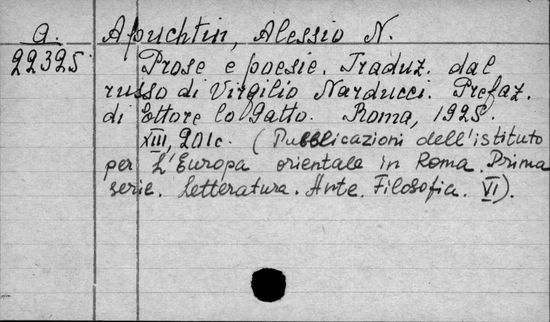 a. Apuchtin, Alessio N.
22325 Prose e poesie. Traduz. dal
russo di Virgilio Narducci. Prefaz.
di Ettore lo Gatto. Roma, 1925.
XIII, 201c. (Pubblicazioni dell'istituto
per L'Europa orientale in Roma. Prima
serie. Letteratura. Arte. Filosofia. VI).